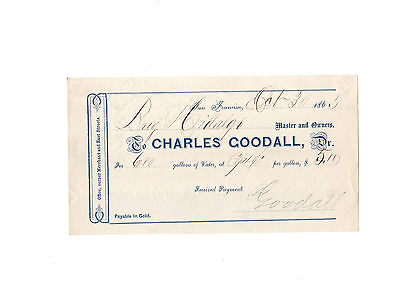 San Francisco, Oct 30 1865
Brig Hidalgo Master and Owners,
To CHARLES GOODALL, Dr.
For 600 gallons of Water, at per gallon, $
Received Payment
Goodall
Payable in Gold.
Office, corner Merchant and East Streets.